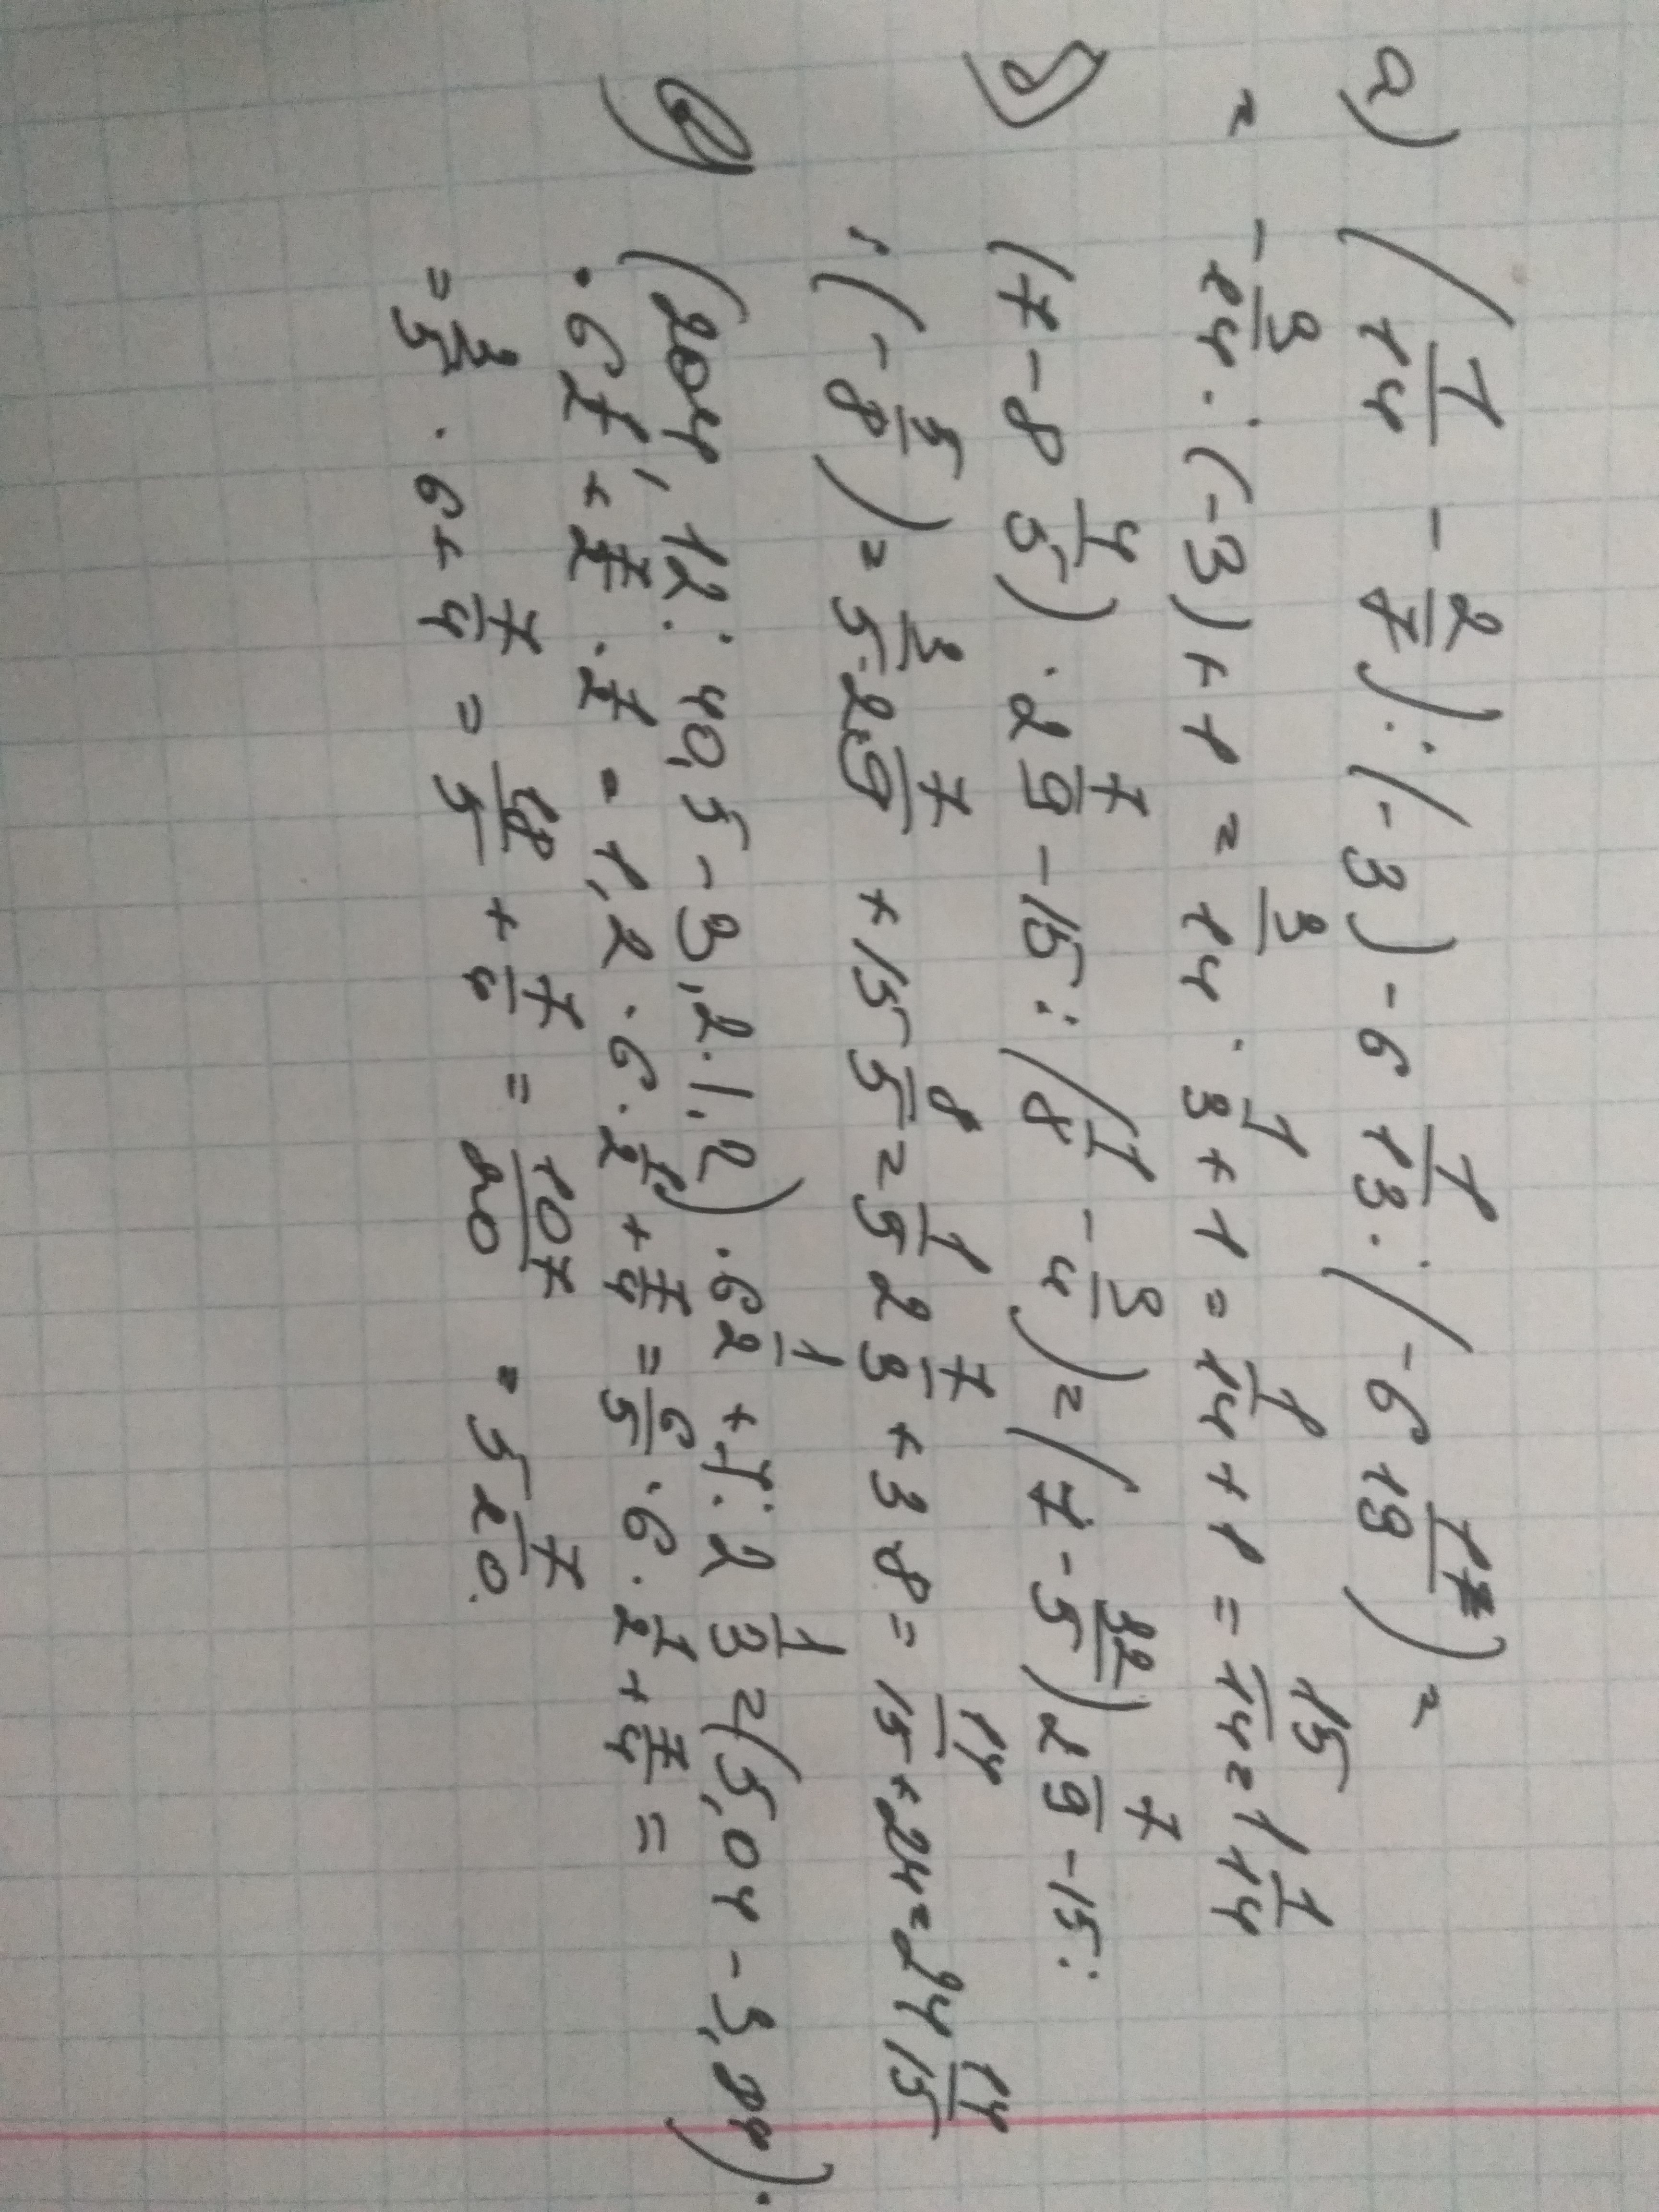 a) (1/14 - 2/7) : (-3) - 6 1/13 : (-6 1/13) =
= - 3/14 : (-3) + 1 = 3/14 · 1/3 + 1 = 1/14 + 1 = 15/14 = 1 1/14
(7 - 8 4/5) · 2 7/9 - 15 : (1/8 - 3/4) = (7 - 32/5) 2 7/9 - 15 :
: (- 5/8) = 3/5 · 2 7/9 + 15 8/5 = 1/5 2 7/3 + 3 8 = 14/15 + 24 = 24 14/15
(204,12 : 40,5 - 3,2 · 1,2) · 6 1/2 + 7 : 2 1/3 = (5,04 - 3,84) ·
· 6 1/2 + 7/2 · 1/2 = 1,2 · 6 · 1/2 + 7/4 = 6/5 · 6 · 1/2 + 7/4 =
= 3/5 · 6 + 7/4 = 18/5 + 7/4 = 107/20 = 5 7/20